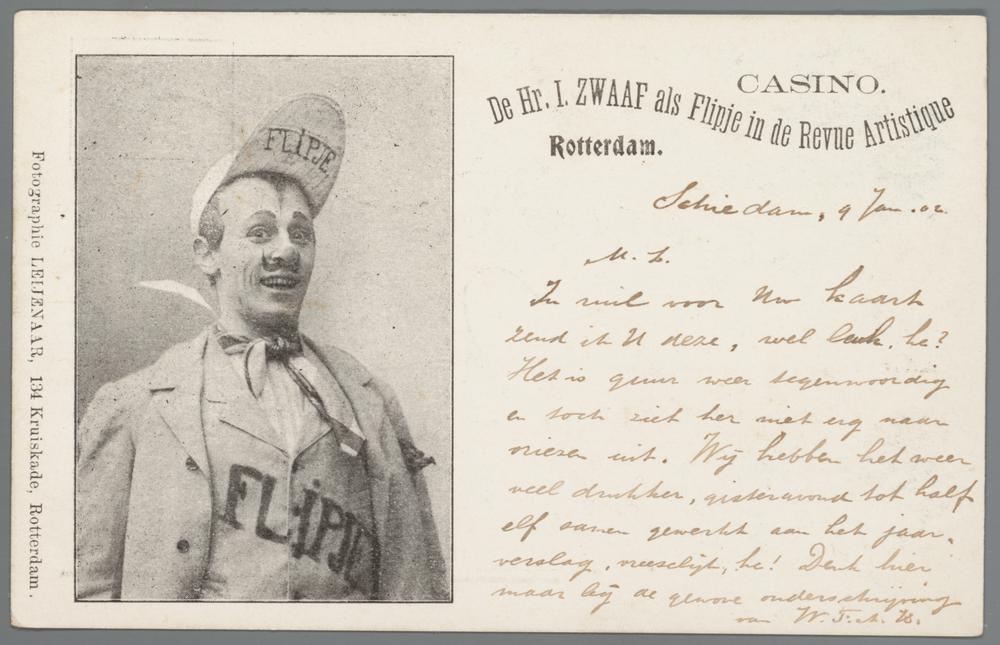 Fotographie LEIJENAAR, 134 Kruiskade, Rotterdam.
FLIPJE
FLIPJE
CASINO.
De Hr. I. ZWAAF als Flipje in de Revue Artistique
Rotterdam.
Schiedam, 9 Jan. 02.
M. L.
In ruil voor Uw kaart
zend ik U deze, wel leuk, he?
Het is guur weer tegenwoordig
en toch ziet het niet erg naar
vriezen uit. Wij hebben het weer
veel drukker, gisteravond tot half
elf samen gewerkt aan het jaar-
verslag, vreeselijk, he! Denk hier
maar bij de gewone onderschrijving
van W. F. A. B.